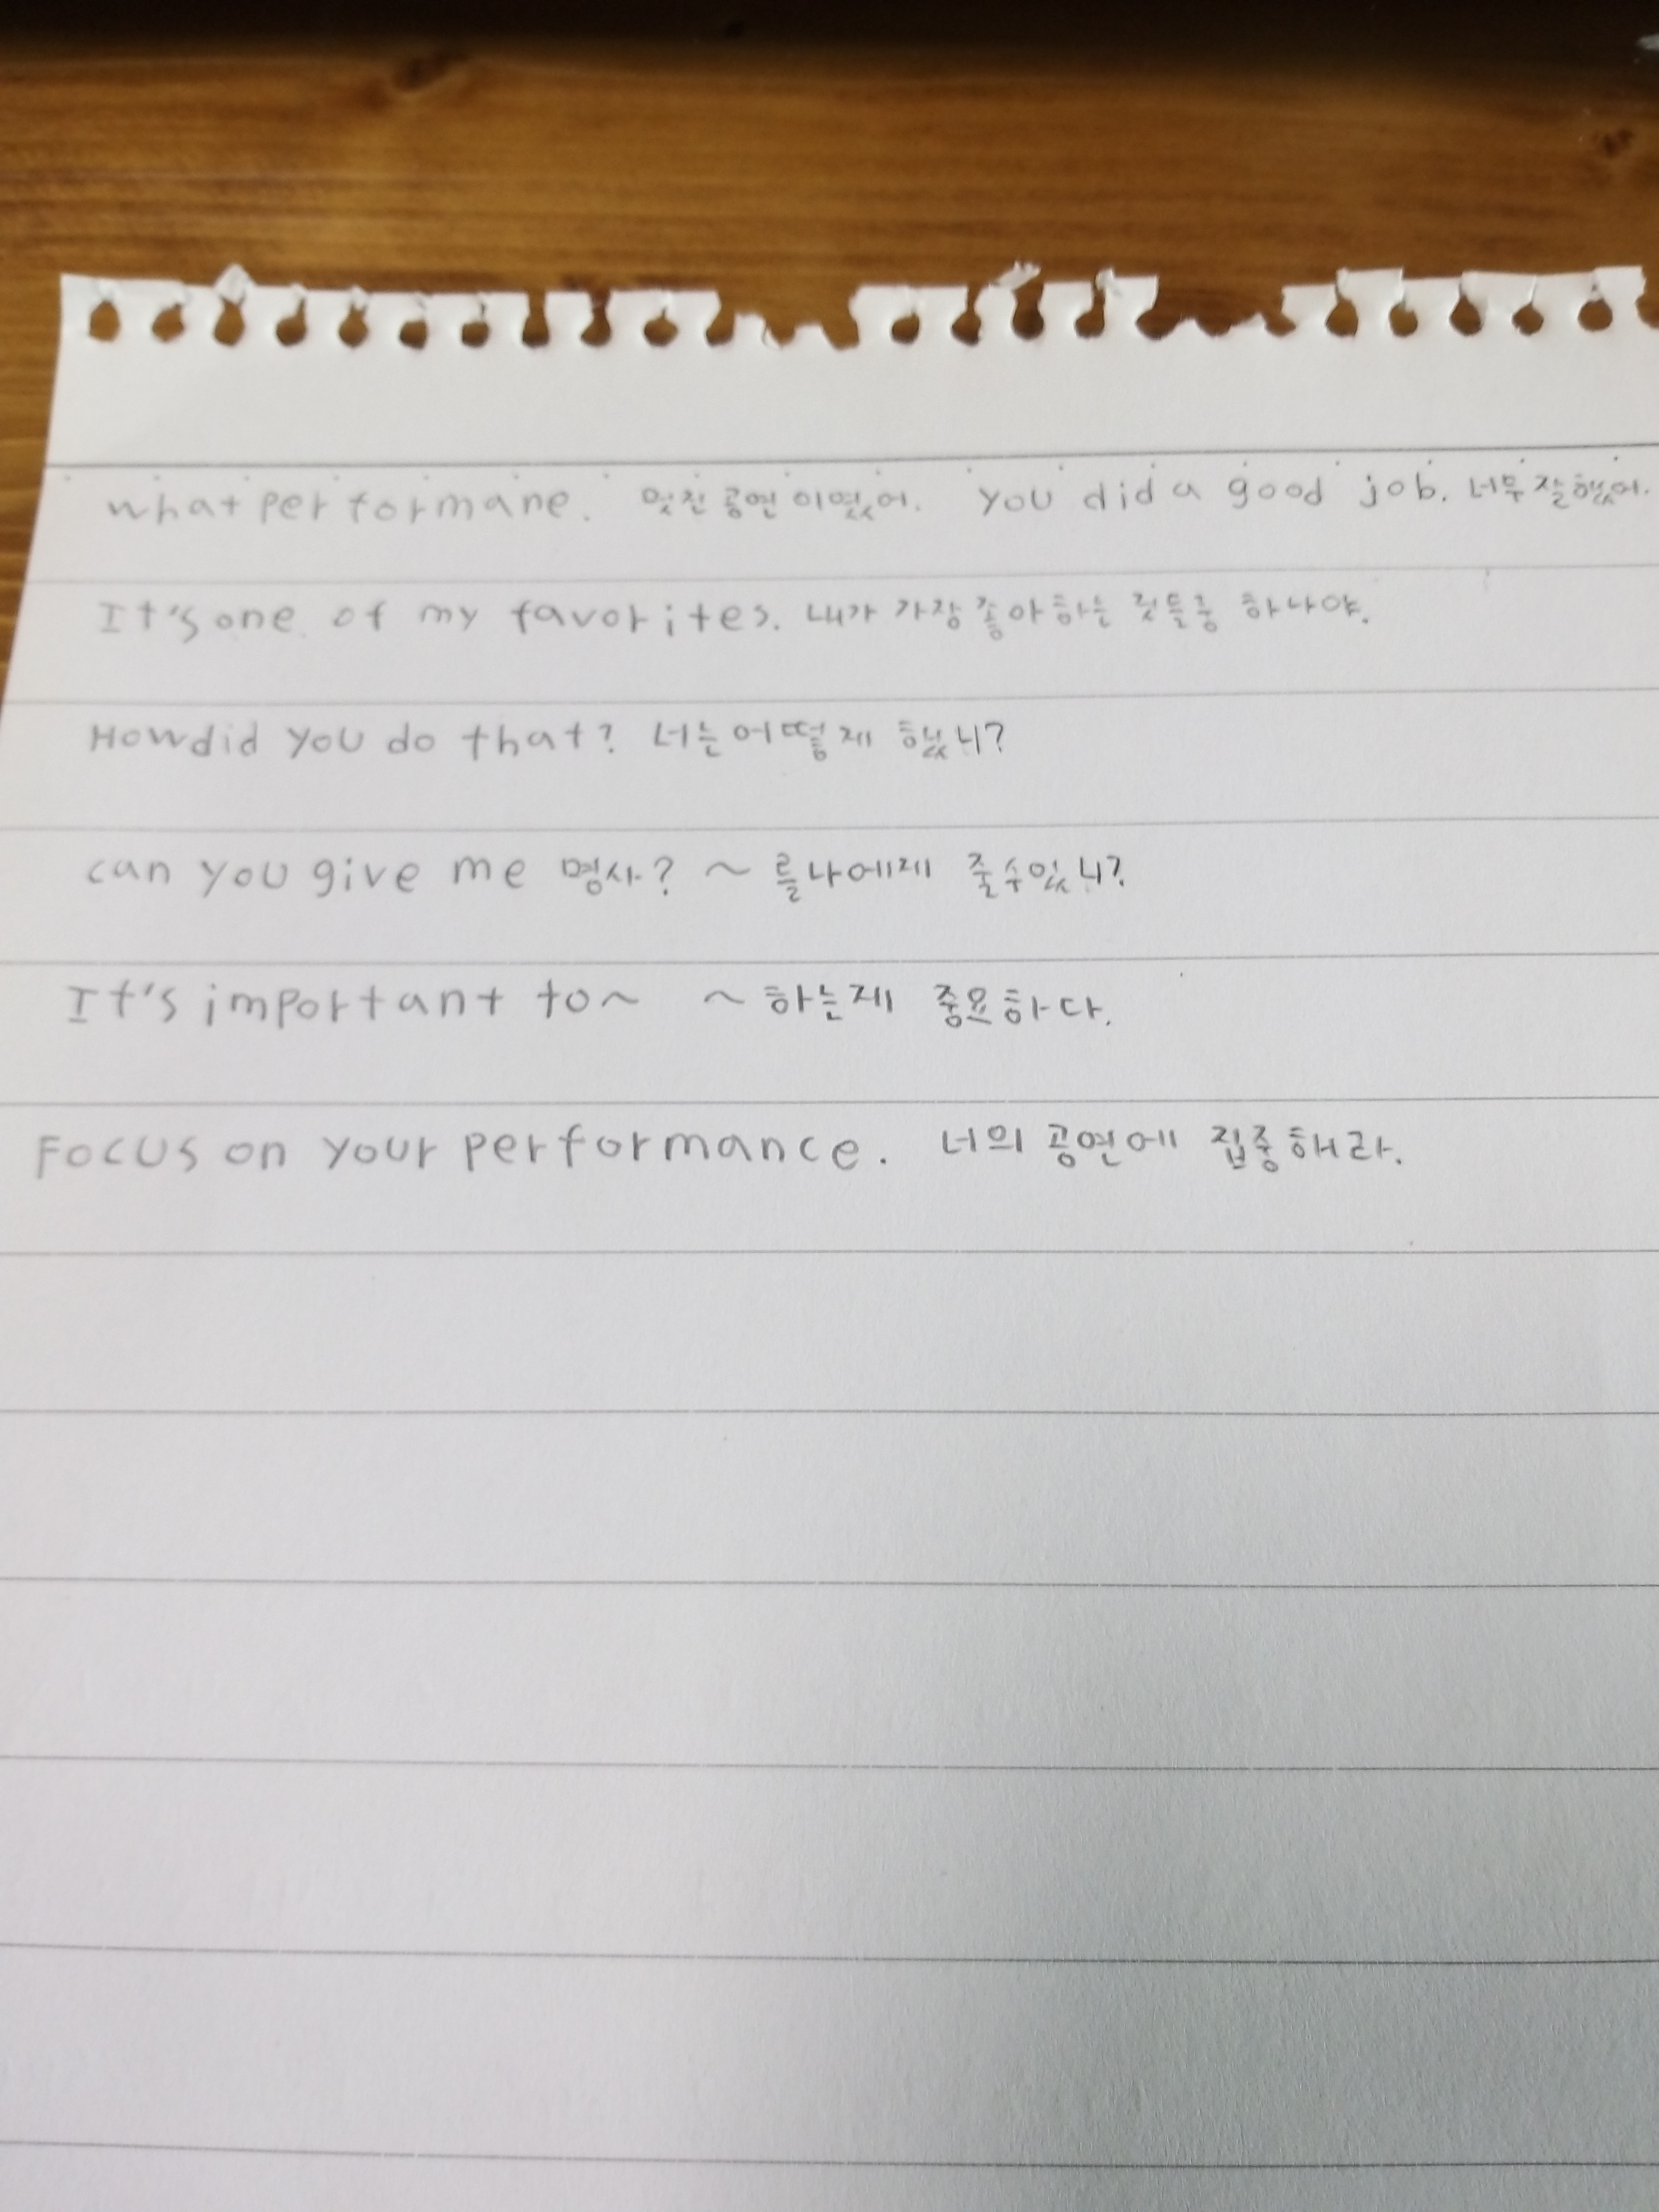 what performane. 멋진 공연이였어. you did a good job. 너무 잘했어.
It's one of my favorites. 내가 가장 좋아하는 것들중 하나야.
How did you do that? 너는 어떻게 했니?
can you give me 명사? ~를 나에게 줄수있니?
It's important to~ ~하는게 중요하다.
Focus on your performance. 너의 공연에 집중해라.